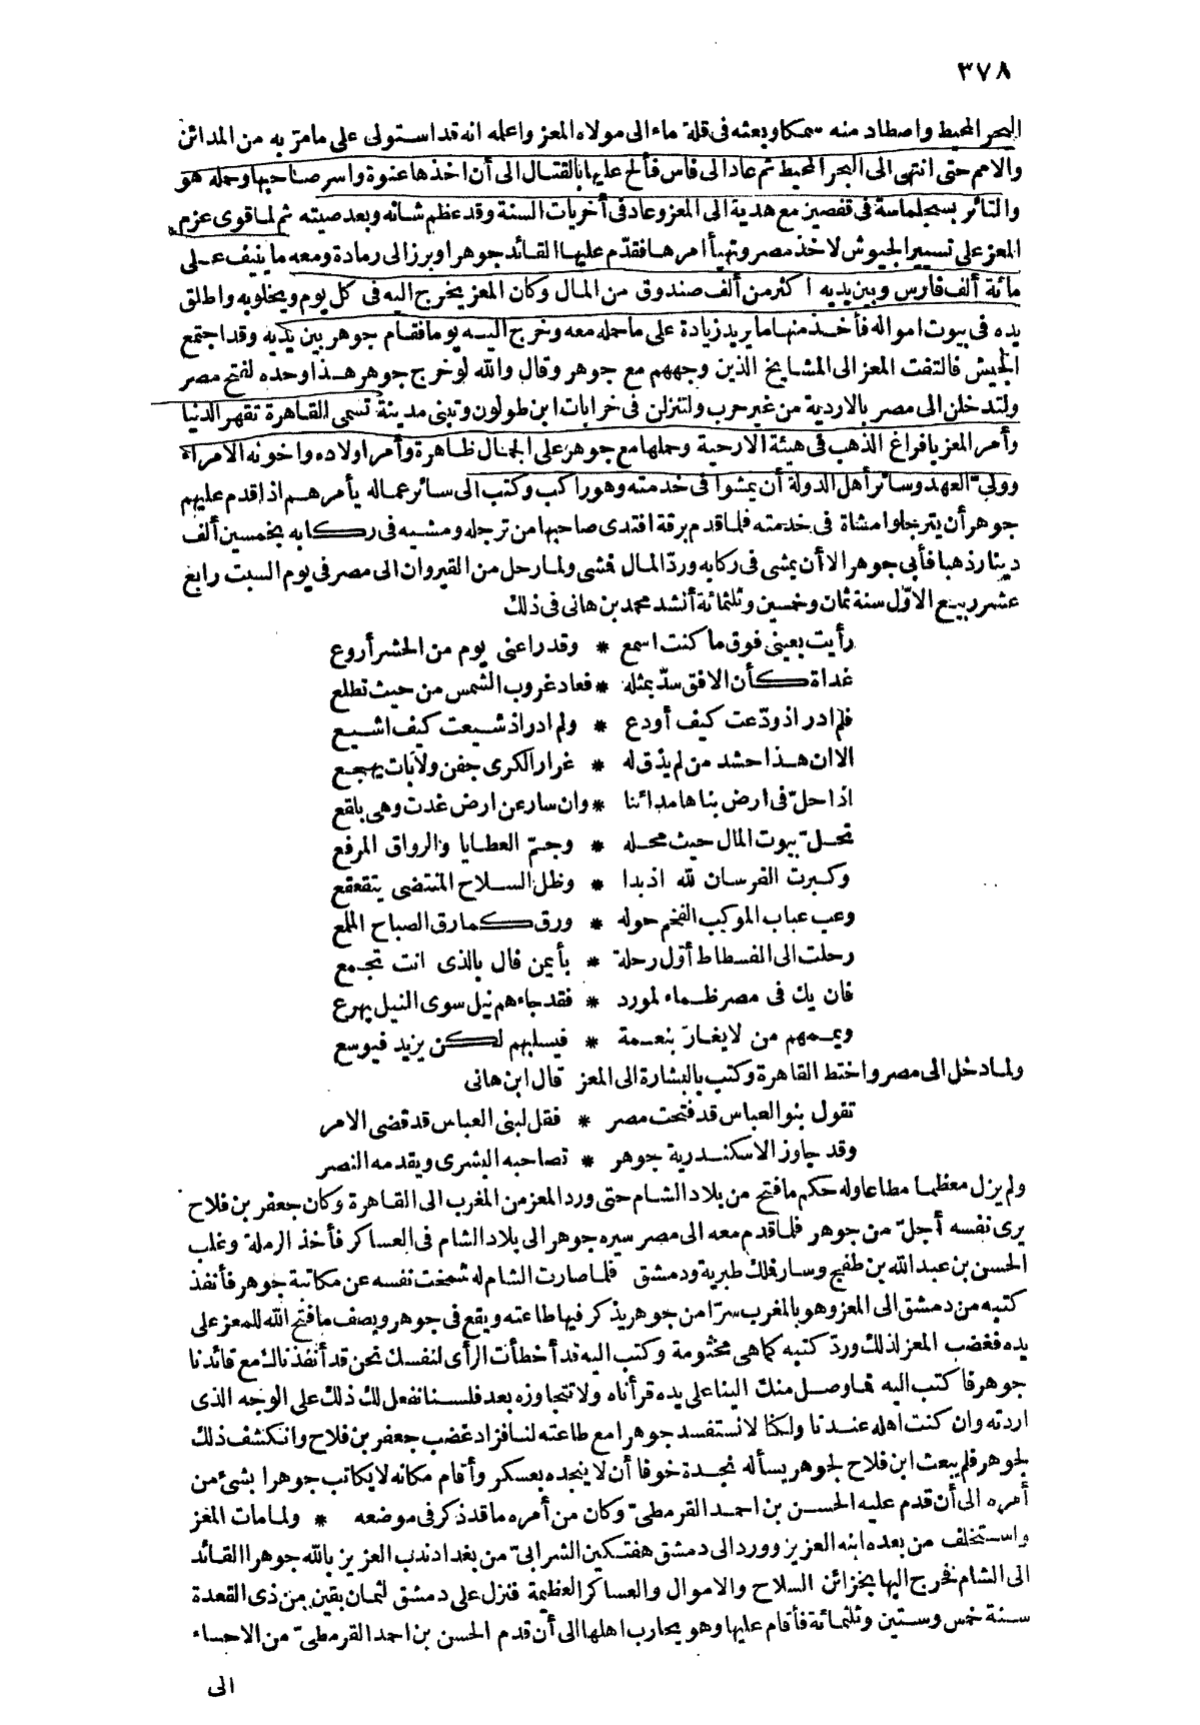 ٣٧٨
البحر المحيط واصطاد منه سمكا وبعثه فى قلة ماء الى مولاه المعز واعلمه انه قد استولى على ما مرّ به من المدائن
والامم حتى انتهى الى البحر المحيط ثم عاد الى فاس فألح عليها بالقتال الى أن اخذها عنوة واسر صاحبها وحمله هو
والثائر بسجلماسة فى قفصين مع هدية الى المعز وعاد فى أخريات السنة وقد عظم شأنه وبعد صيته ثم لما قوى عزم
المعز على تسيير الجيوش لاخذ مصر وتهيأ امرها فقدّم عليها القائد جوهرا وبرز الى رمادة ومعه ما ينيف على
مائة ألف فارس وبين يديه اكثر من ألف صندوق من المال وكان المعز يخرج اليه فى كل يوم ويخلو به واطلق
يده فى بيوت امواله فأخذ منها ما يريد زيادة على ما حمله معه وخرج اليه يوما فقام جوهر بين يديه وقد اجتمع
الجيش فالتفت المعز الى المشايخ الذين وجههم مع جوهر وقال والله لو خرج جوهر هذا وحده لفتح مصر
ولتدخلن الى مصر بالاردية من غير حرب ولتنزلن فى خرابات ابن طولون وتبنى مدينة تسمى القاهرة تقهر الدنيا
وأمر المعز بافراغ الذهب فى هيئة الارحية وحملها مع جوهر على الجمال ظاهرة وأمر اولاده واخوته الامراء
وولىّ العهد وسائر أهل الدولة أن يمشوا فى خدمته وهو راكب وكتب الى سائر عماله يأمرهم اذا قدم عليهم
جوهر أن يترجلوا مشاة فى خدمته فلما قدم برقة افتدى صاحبها من ترجله ومشيه فى ركابه بخمسين ألف
دينار ذهبا فأبى جوهر الا أن يمشى فى ركابه وردّ المال فمشى ولما رحل من القيروان الى مصر فى يوم السبت رابع
عشر ربيع الاوّل سنة ثمان وخمسين وثلثمائة أنشد محمد بن هانى فى ذلك
رأيت بعينى فوق ما كنت اسمع * وقد راعنى يوم من الحشر أروع
غداة كأن الافق سدّ بمثله * فعاد غروب الشمس من حيث تطلع
فلم ادر اذ ودّعت كيف أودع * ولم ادر اذ شيعت كيف اشيع
الا ان هذا حشد من لم يذق له * غرار الكرى جفن ولا بات يهجع
اذا حلّ فى ارض بناها مدائنا * وان سار عن ارض غدت وهى بلقع
تحلّ بيوت المال حيث محله * وجمّ العطايا والرواق المرفع
وكبرت الفرسان لله اذ بدا * وظل السلاح المنتضى يتقعقع
وعب عباب الموكب الفخم حوله * ورق كما رق الصباح الملمع
رحلت الى الفسطاط أوّل رحلة * بأيمن فال بالذى انت تجمع
فان يك فى مصر ظماء لمورد * فقد جاءهم نيل سوى النيل يهرع
ويممهم من لا يغار بنعمة * فيسلبهم لكن يزيد فيوسع
ولما دخل الى مصر واختط القاهرة وكتب بالبشارة الى المعز قال ابن هانى
تقول بنو العباس قد فتحت مصر * فقل لبنى العباس قد قضى الامر
وقد جاوز الاسكندرية جوهر * تصاحبه البشرى ويقدمه النصر
ولم يزل معظما مطاعا وله حكم ما فتح من بلاد الشام حتى ورد المعز من المغرب الى القاهرة وكان جعفر بن فلاح
يرى نفسه أجلّ من جوهر فلما قدم معه الى مصر سيره جوهر الى بلاد الشام فى العساكر فأخذ الرملة وغلب
الحسن بن عبد الله بن طغج وسار فملك طبرية ودمشق فلما صارت الشام له شمخت نفسه عن مكاتبة جوهر فأنفذ
كتبه من دمشق الى المعز وهو بالمغرب سرّا من جوهر يذكر فيها طاعته ويقع فى جوهر ويصف ما فتح الله للمعز على
يده فغضب المعز لذلك وردّ كتبه كما هى مختومة وكتب اليه قد أخطأت الرأى لنفسك نحن قد أنفذناك مع قائدنا
جوهر فاكتب اليه فما وصل منك الينا على يده قرأناه ولا تتجاوزه بعد فلسنا نفعل لك ذلك على الوجه الذى
اردته وان كنت اهله عندنا ولكنا لا نستفسد جوهرا مع طاعته لنا فزاد غضب جعفر بن فلاح وانكشف ذلك
لجوهر فلم يبعث ابن فلاح لجوهر يسأله نجدة خوفا أن لا ينجده بعسكر وأقام مكانه لا يكاتب جوهرا بشئ من
أمره الى أن قدم عليه الحسن بن احمد القرمطىّ وكان من أمره ما قد ذكر فى موضعه * ولما مات المعز
واستخلف من بعده ابنه العزيز وورد الى دمشق هفتكين الشرابىّ من بغداد ندب العزيز بالله جوهرا القائد
الى الشام فخرج اليها بخزائن السلاح والاموال والعساكر العظيمة فنزل على دمشق لثمان بقين من ذى القعدة
سنة خمس وستين وثلثمائة فأقام عليها وهو يحارب اهلها الى أن قدم الحسن بن احمد القرمطىّ من الاحساء
الى